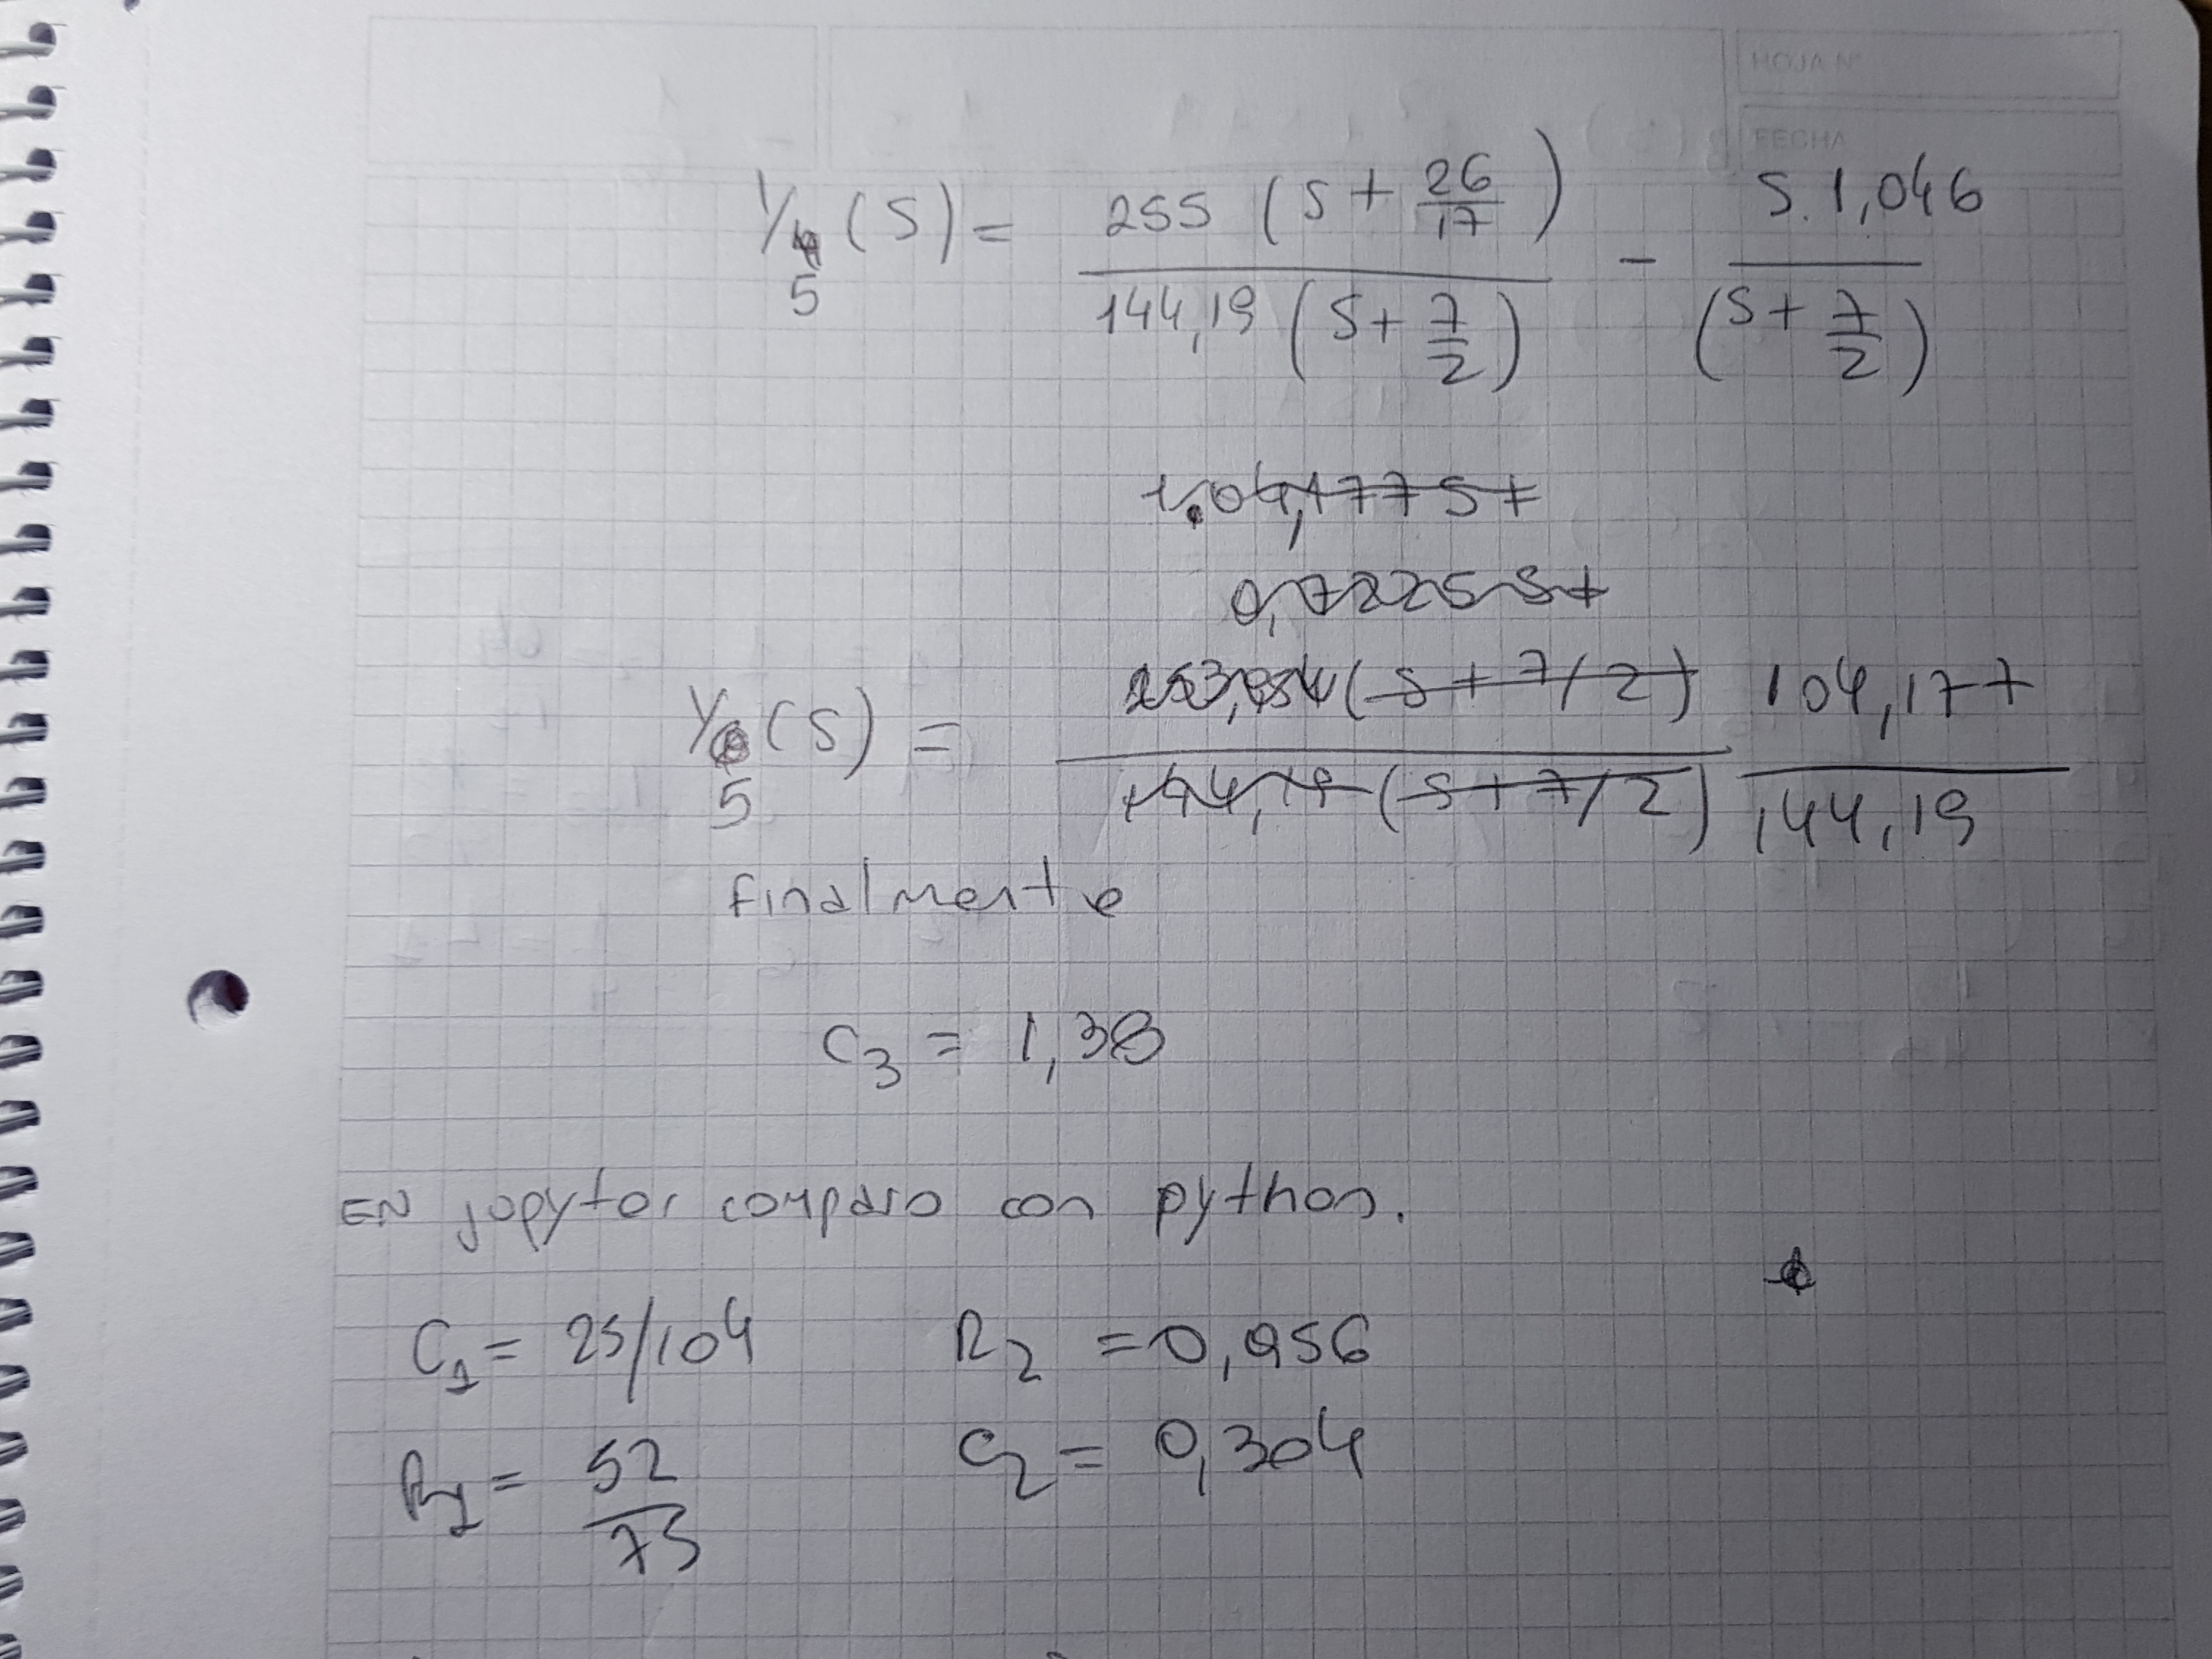 HOJA N°
FECHA
Y5(S) = 255 (S + 26/17) / 144,19 (S + 7/2) - S.1,046 / (S + 7/2)
104,177 S +
0,7225 S +
Y5(S) = (S + 7/2) / 144,19 (S + 7/2) 104,177 / 144,19
finalmente
C3 = 1,38
EN jupyter comparo con python.
C1 = 25/104 R2 = 0,956
R1 = 52/75 C2 = 0,304